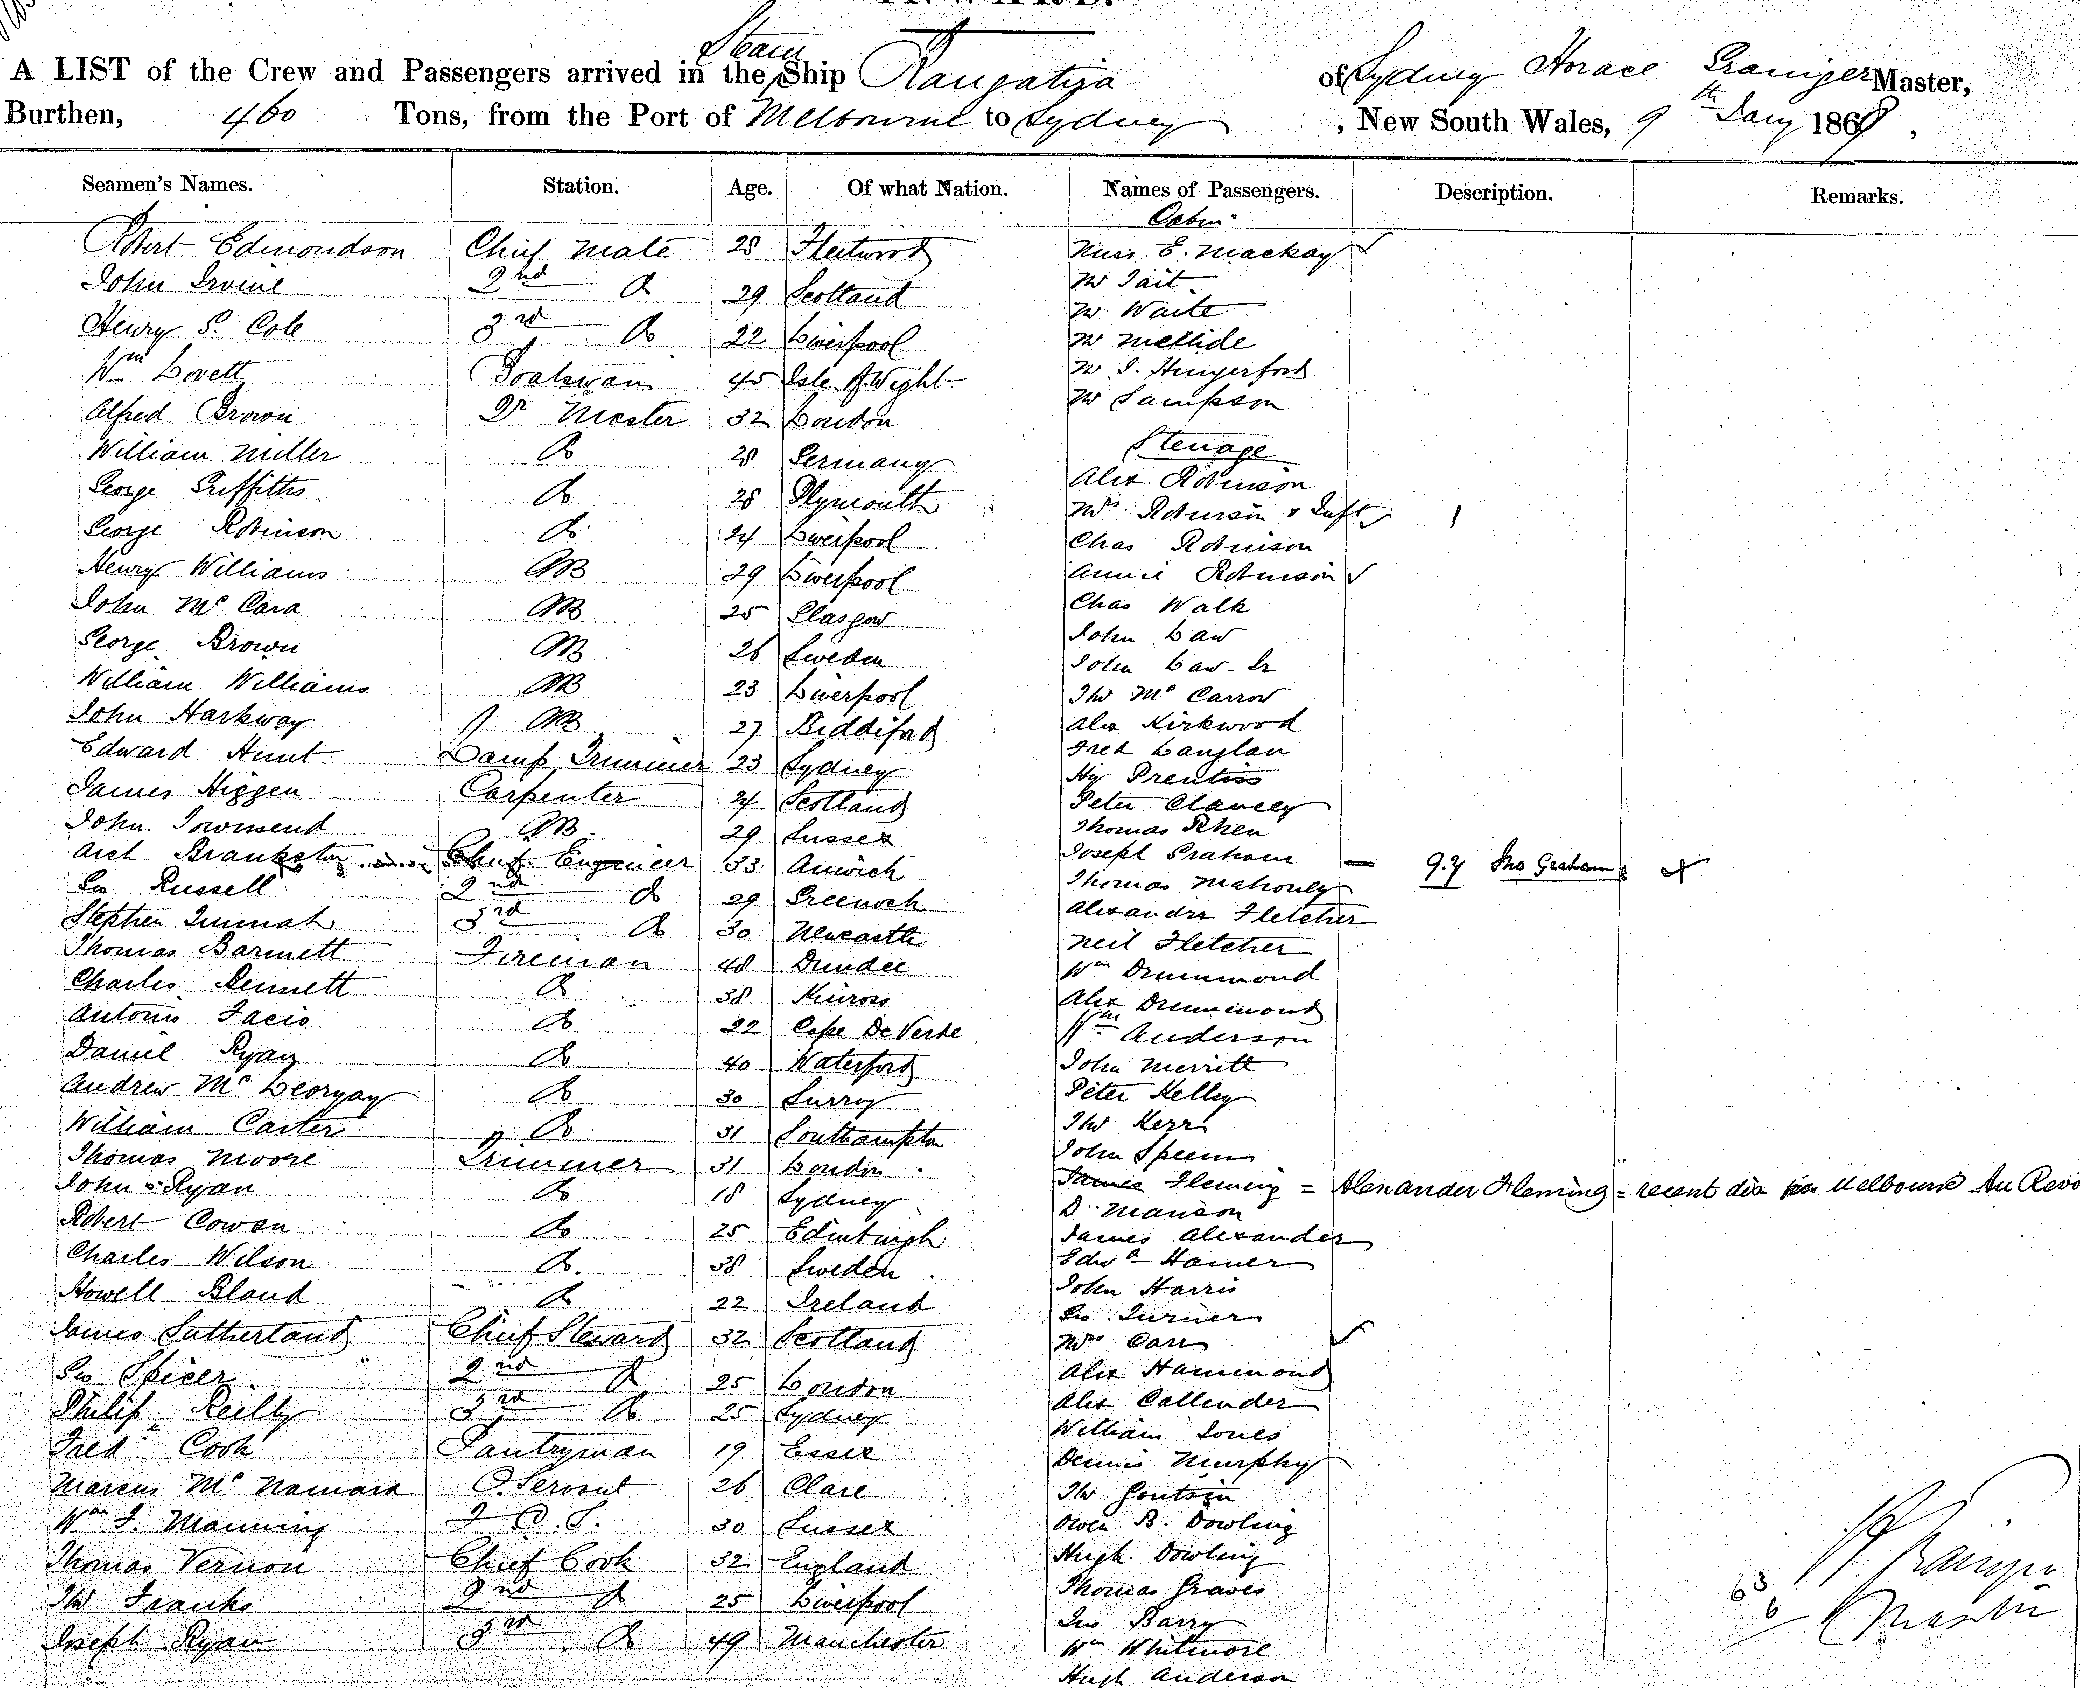 A LIST of the Crew and Passengers arrived in the Steam Ship Rangatira of Sydney Horace Grainger Master,
Burthen, 460 Tons, from the Port of Melbourne to Sydney, New South Wales, 9th Jany 1868,
Seamen's Names. Station. Age. Of what Nation. Names of Passengers. Description. Remarks.
Cabin
Robert Edmondson Chief Mate 28 Fleetwood Miss E. Mackay
John Irvine 2nd Do 29 Scotland Mr Tait
Henry S. Cole 3rd Do 22 Liverpool Mr Waite
Mr
Wm Lovett Boatswain 45 Isle of Wight Mr J. Hungerford
Alfred Brown Qr Master 32 London Mr Sampson
Steerage
William Miller Do 28 Germany Alex Robinson
George Griffiths Do 28 Plymouth Mrs Robinson & Inft 1
George Robinson Do 24 Liverpool Chas Robinson
Henry Williams AB 29 Liverpool Annie Robinson
John Mc Cara AB 25 Glasgow Chas Walk
George Brown AB 26 Sweden John Law
John Law Jr
William Williams AB 23 Liverpool Tho Mc Carrow
John Harkway AB 27 Biddiford Alex Kirkwood
Edward Hunt Lamp Trimmer 23 Sydney Fred Langlan
Hy Prentiss
James Higgen Carpenter 24 Scotland Peter Clancey
John Townsend AB 29 Sussex Thomas Rhen
Arch Chief Engineer 33 Anwich Joseph Graham — 94 Jno Graham
Geo Russell 2nd Do 29 Greenock Thomas Mahoney
Stephen 3rd Do 30 Newcastle Alexander Fletcher
Thomas Barnett Fireman 48 Dundee Neil Fletcher
Wm Drummond
Charles Rennett Do 38 Kinross Alex Drummond
Antonio Facio Do 22 Cape De Verde Wm Anderson
Daniel Ryan Do 40 Waterford John Merritt
Andrew Mc Do 30 Surry Peter Kelley
William Carter Do 31 Southampton Tho Kerr
Thomas Moore Trimmer 31 London John Speen
John Ryan Do 18 Sydney James Fleming = Alexander Fleming = recent dix per Melbourne Au Revo
D. Manson
Robert Cowan Do 25 Edinburgh James Alexander
Charles Wilson Do 38 Sweden Edwd Hamer
Howell Bland Do 22 Ireland John Harris
Geo Turner
James Sutherland Chief Steward 32 Scotland Mrs Carr
Geo Spicer 2nd Do 25 London Alex Hammond
Philip Reilly 3rd Do 25 Sydney Alex Callender
William Jones
Fred Cook Pantryman 19 Essex Dennis Murphy
Marcus Mc Namara O. Servant 26 Clare Tho
Wm J. Manning 30 Sussex Owen B. Dowling
Thomas Vernon Chief Cook 32 England Hugh Dowling
Tho Franks 2nd Do 25 Liverpool Thomas Graves
Jas Barry
Joseph Ryan 3rd Do 49 Manchester Wm Whitmore
Hugh Anderson
63
6
H Grainger
Master